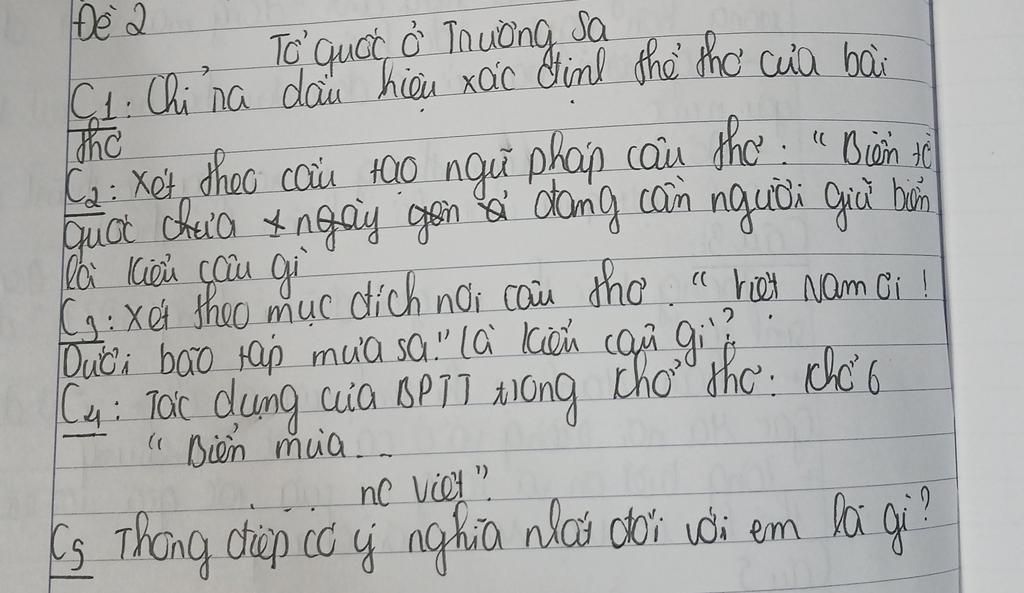 Đề 2
Tổ quốc ở Trường Sa
C1: Chỉ ra dấu hiệu xác định thể thơ của bài
thơ
C2: Xét theo cấu tạo ngữ pháp câu thơ: "Biển tổ
quốc chưa ngày đang cần người giữ biển
là kiểu câu gì
C3: Xét theo mục đích nói câu thơ. "Việt Nam ơi!
Dưới bão táp mưa sa." là kiểu câu gì?
C4: Tác dụng của BPTT trong khổ thơ: khổ 6
"Biển mùa...
... nc Việt".
C5 Thông điệp có ý nghĩa nhất đối với em là gì?